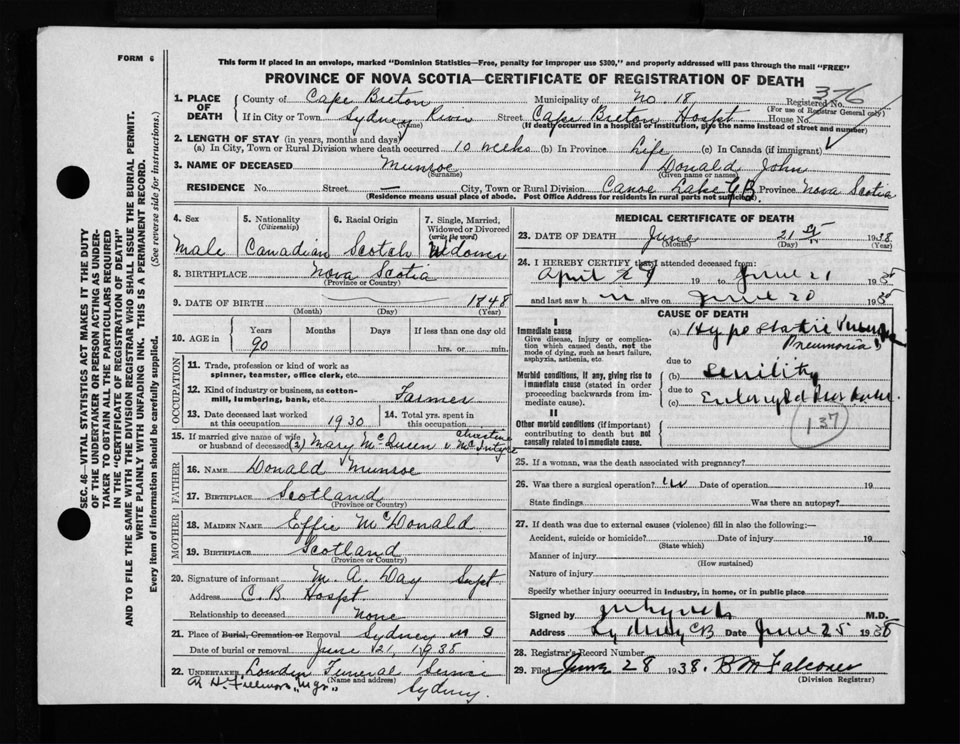 FORM 6
This form if placed in an envelope, marked "Dominion Statistics—Free, penalty for improper use $300," and properly addressed will pass through the mail "FREE"
PROVINCE OF NOVA SCOTIA—CERTIFICATE OF REGISTRATION OF DEATH
376
1. PLACE OF DEATH
County of Cape Breton Municipality of No. 18 Registered No.
(For use of Registrar General only)
If in City or Town Sydney River Street Cape Breton Hospt. House No.
(Name) (If death occurred in a hospital or institution, give the name instead of street and number)
2. LENGTH OF STAY (in years, months and days)
(a) In City, Town or Rural Division where death occurred 10 weeks (b) In Province Life (c) In Canada (if immigrant)
3. NAME OF DECEASED Munroe Donald John
(Surname) (Given name or names)
RESIDENCE No. Street — City, Town or Rural Division Canoe Lake CB Province Nova Scotia
(Residence means usual place of abode. Post Office Address for residents in rural parts not sufficient.)
4. Sex 5. Nationality (Citizenship) 6. Racial Origin 7. Single, Married, Widowed or Divorced (write the word)
Male Canadian Scotch Widower
8. BIRTHPLACE Nova Scotia
(Province or Country)
9. DATE OF BIRTH 1848
(Month) (Day) (Year)
10. AGE in Years Months Days If less than one day old
90 hrs. or min.
OCCUPATION
11. Trade, profession or kind of work as spinner, teamster, office clerk, etc.
12. Kind of industry or business, as cotton-mill, lumbering, bank, etc. Farmer
13. Date deceased last worked at this occupation 1930 14. Total yrs. spent in this occupation
15. If married give name of wife or husband of deceased (2) Mary McQueen & Christine McIntyre
FATHER
16. NAME Donald Munroe
17. BIRTHPLACE Scotland
(Province or Country)
MOTHER
18. MAIDEN NAME Effie McDonald
19. BIRTHPLACE Scotland
(Province or Country)
20. Signature of informant M. A. Day Supt
Address C. B. Hospt
Relationship to deceased None
21. Place of Burial, Cremation or Removal Sydney N S
Date of burial or removal June 21, 1938
22. UNDERTAKER Funeral
(Name and address)
Sydney.
MEDICAL CERTIFICATE OF DEATH
23. DATE OF DEATH June 21st 1938
(Month) (Day) (Year)
24. I HEREBY CERTIFY that I attended deceased from:
April 19 to June 21 1938
and last saw h im alive on June 20 1938
CAUSE OF DEATH
I
Immediate cause
Give disease, injury or complication which caused death, not the mode of dying, such as heart failure, asphyxia, asthenia, etc.
(a) Hypostatic
Pneumonia
due to
Morbid conditions, if any, giving rise to immediate cause (stated in order proceeding backwards from immediate cause).
(b) Senility
due to
(c) Enlarged
II
Other morbid conditions (if important) contributing to death but not causally related to immediate cause.
137
25. If a woman, was the death associated with pregnancy?
26. Was there a surgical operation? Date of operation 19
State findings Was there an autopsy?
27. If death was due to external causes (violence) fill in also the following:—
Accident, suicide or homicide? Date of injury 19
(State which)
Manner of injury
(How sustained)
Nature of injury
Specify whether injury occurred in industry, in home, or in public place
Signed by M.D.
Address Sydney CB Date June 25 1938
28. Registrar's Record Number
29. Filed June 28 1938. B M Falconer
(Division Registrar)
SEC. 46—VITAL STATISTICS ACT MAKES IT THE DUTY OF THE UNDERTAKER OR PERSON ACTING AS UNDERTAKER TO OBTAIN ALL THE PARTICULARS REQUIRED IN THE "CERTIFICATE OF REGISTRATION OF DEATH" AND TO FILE THE SAME WITH THE DIVISION REGISTRAR WHO SHALL ISSUE THE BURIAL PERMIT.
WRITE PLAINLY WITH UNFADING INK. THIS IS A PERMANENT RECORD.
Every item of information should be carefully supplied. (See reverse side for instructions.)